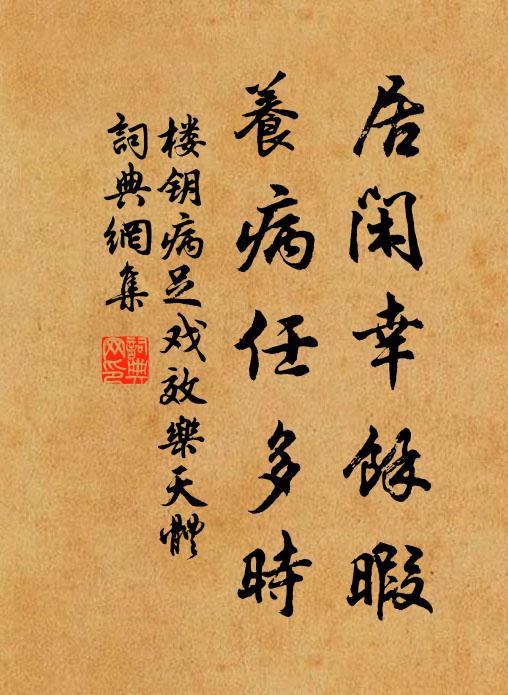 居閑幸餘暇
養病任多時
楼钥病足戏效樂天體
詞典網集
詞典網印